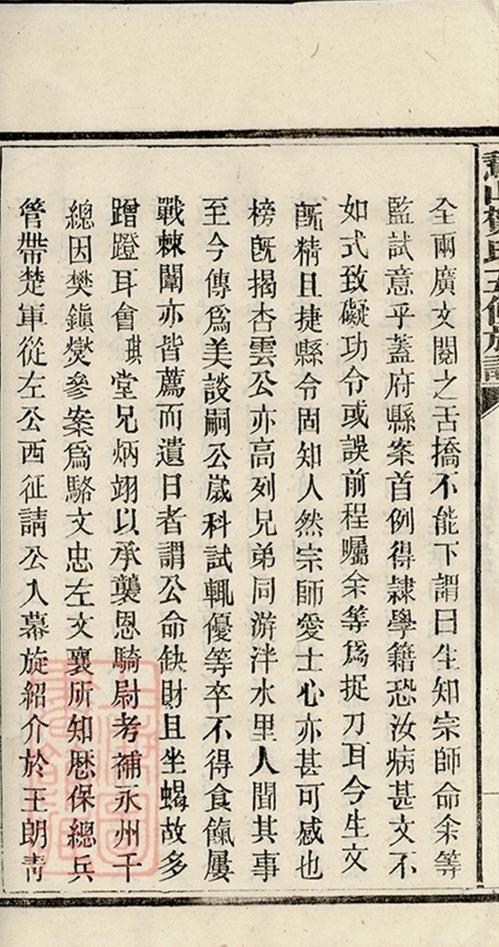 全兩廣文閱之舌撟不能下謂曰生知宗師命余等
監試意乎蓋府縣案首例得隷學籍恐汝病甚文不
如式致礙功令或誤前程囑余等爲捉刀耳今生文
旣精且捷縣令固知人然宗師愛士心亦甚可感也
榜旣揭杏雲公亦高列兄弟同游泮水里人聞其事
至今傳爲美談嗣公歲科試輒優等卒不得食餼屢
戰棘闈亦皆薦而遺日者謂公命缺財且坐蝎故多
蹭蹬耳會琪堂兄炳翊以承襲恩騎尉考補永州千
總因樊鎭燮參案爲駱文忠左文襄所知歷保總兵
管帶楚軍從左公西征請公入幕旋紹介於王朗靑